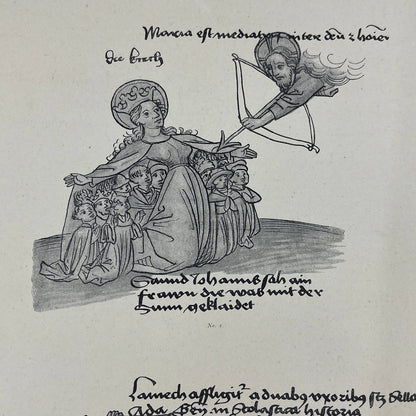 Maria est mediatrix inter deū z hoīem
die kirch
Sannd Johanns sah ain
frawn die was mit der
Sunn geklaidet
No. 1.
Lamech affligit a duabus vxoribus sz Sella
Ada Gen in Scolastica historia